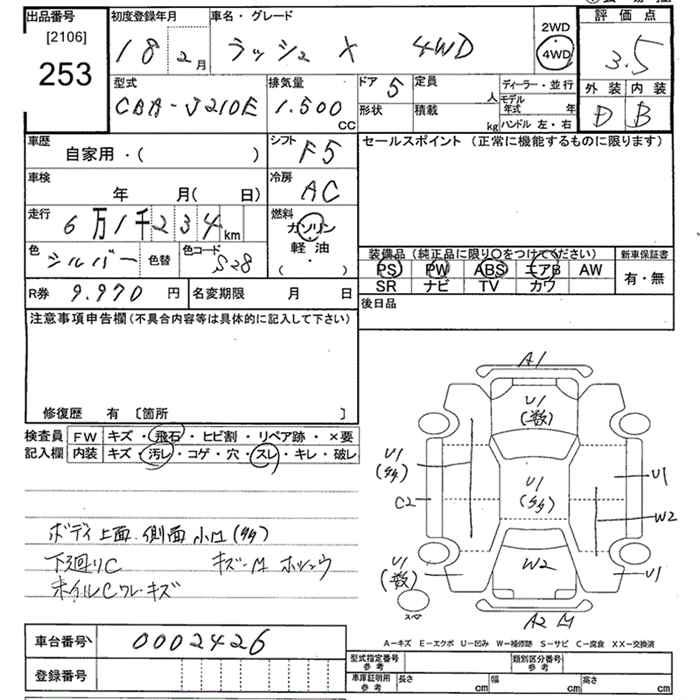 出品番号
[2106]
253
初度登録年月
18 2月
車名・グレード
ラッシュ X 4WD
2WD
4WD
評価点
3.5
型式
CBA-J210E
排気量
1.500
CC
ドア 5
定員
人
形状
積載
kg
ディーラー・並行
モデル年式 年
ハンドル 左・右
外装 内装
D B
車歴
自家用・( )
シフト
F5
セールスポイント (正常に機能するものに限ります)
車検
年 月( 日)
冷房
AC
走行
6万1千234km
燃料
ガソリン
軽油
( ・ )
色
シルバー
色替
色コード
S28
装備品 (純正品に限り○をつけてください)
新車保証書
PS PW ABS エアB AW
有・無
SR ナビ TV カワ
R券 9.970 円
名変期限 月 日
後日品
注意事項申告欄(不具合内容等は具体的に記入して下さい)
修復歴 有 〔箇所 〕
検査員
記入欄
FW キズ・飛石・ヒビ割・リペア跡・×要
内装 キズ・汚レ・コゲ・穴・スレ・キレ・破レ
ボディ上面.側面 小U (多々)
下廻りC
キズ-M ホシュウ
ホイルCワレ・キズ
A1
U1
(数)
U1
(多々)
U1
(多々)
C2
U1
W2
U1
(数)
W2
U1
スペア
A2 M
A-キズ E-エクボ U-凹み W-補修跡 S-サビ C-腐食 XX-交換済
車台番号
0002426
登録番号
型式指定番号
参考
類別区分番号
参考
車庫証明用
参考
長さ cm
幅 cm
高さ cm